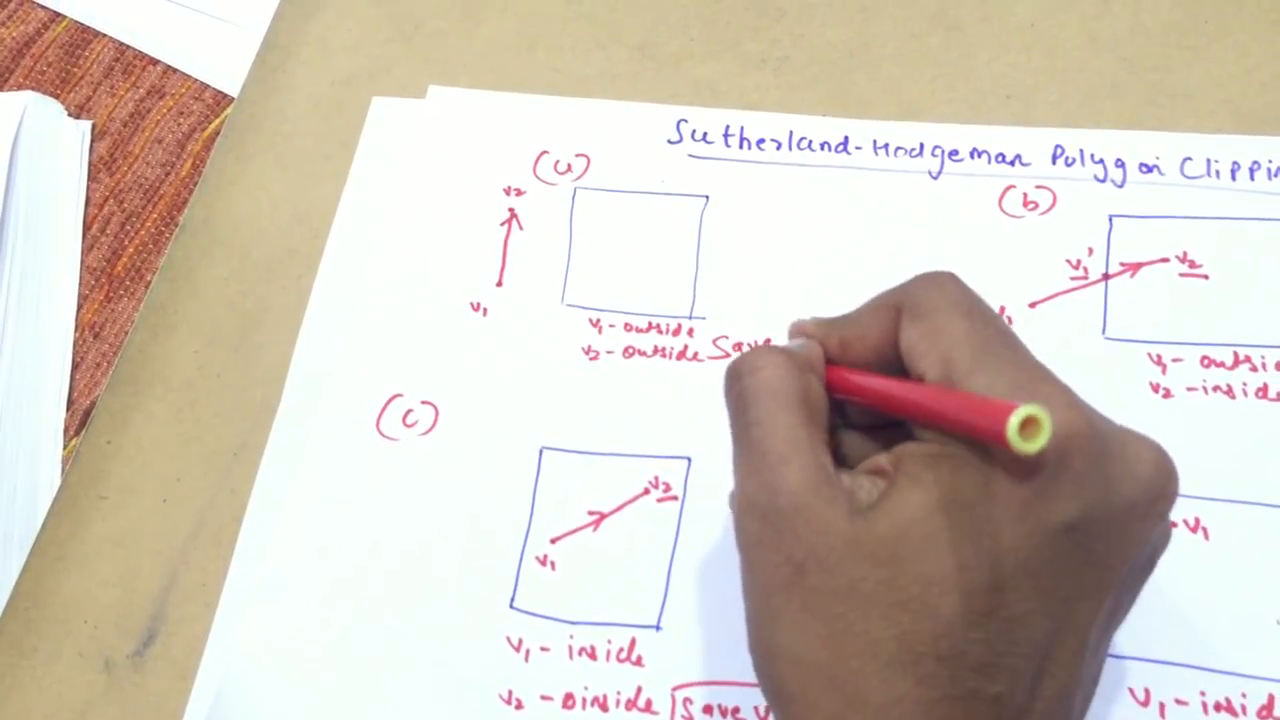 Sutherland-Hodgeman Polygon Clippin
(a)
v2
v1
v1-outside
v2-outside Save
(b)
v1'
v2
v1-outsid
v2-inside
(c)
v2
v1
v1-inside
v2-oinside Save V
v1
V1-insid